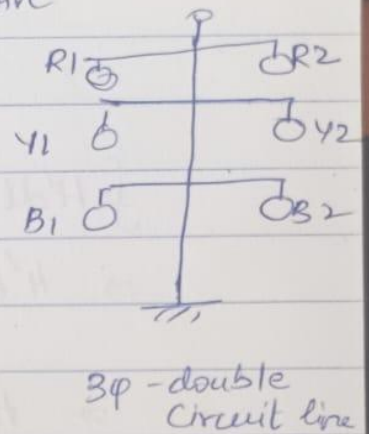 R1 R2
Y1 Y2
B1 B2
3φ - double
Circuit line